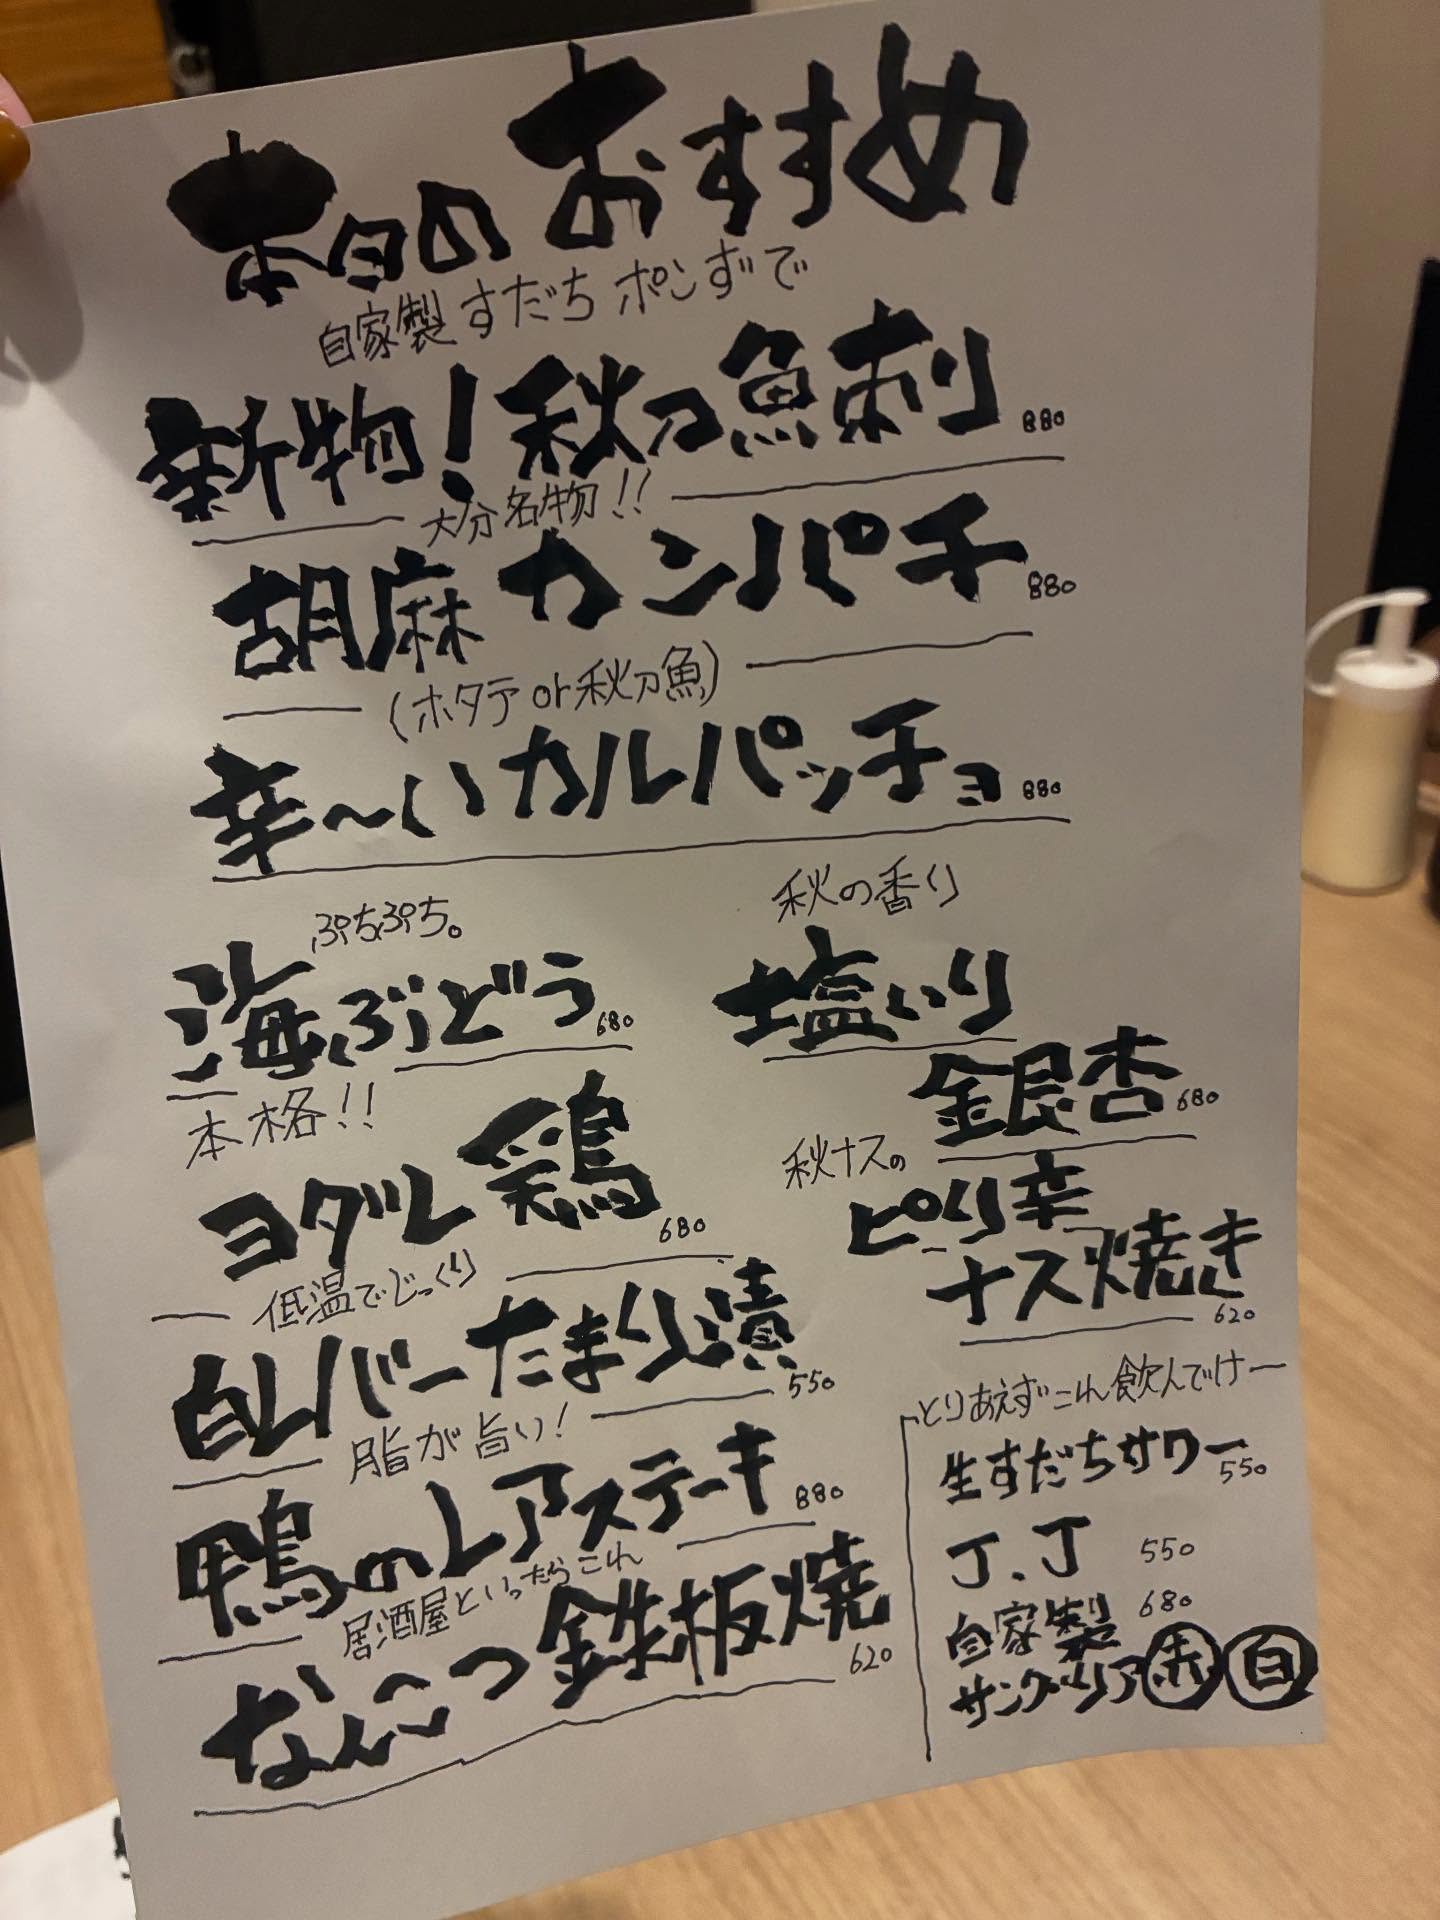 本日のおすすめ
自家製すだちポンずで
新物！秋刀魚刺 880
大分名物!!
胡麻カンパチ 880
(ホタテor秋刀魚)
辛〜いカルパッチョ 880
ぷちぷち。
海ぶどう 680
本格!!
ヨダレ鶏 680
低温でじっくり
白レバーたまり漬 550
脂が旨い!
鴨のレアステーキ 880
居酒屋といったらこれ
なんこつ鉄板焼 620
秋の香り
塩いり
銀杏 680
秋ナスの
ピリ辛
ナス焼き 620
とりあえずこれ飲んでけー
生すだちサワー 550
J.J 550
自家製 680
サングリア 赤 白